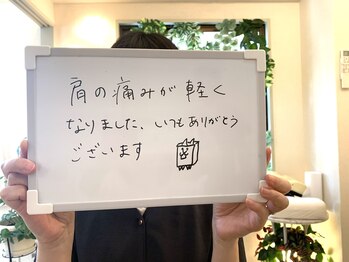 肩の痛みが軽く
なりました、いつもありがとう
ございます